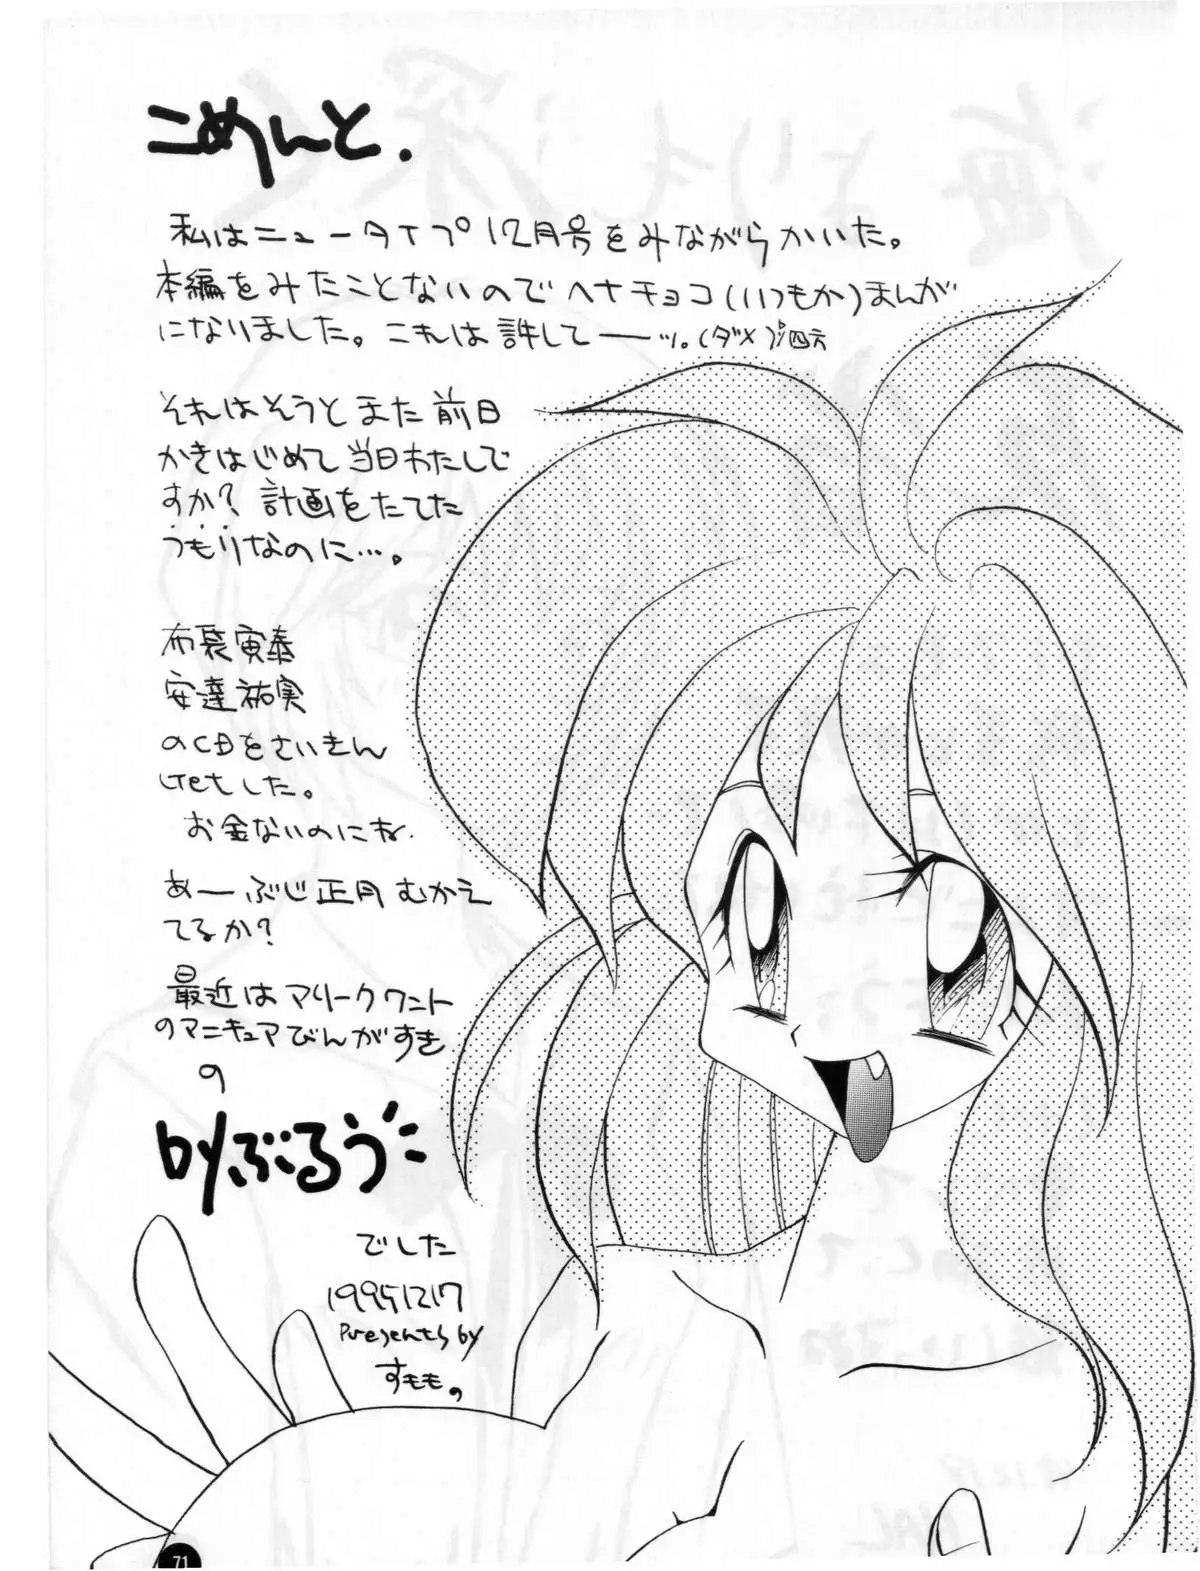 こめんと.
私はニュータイプ12月号をみながらかいた。
本編をみたことないのでヘナチョコ(いつもか)まんが
になりました。これは許してーーッ。(ダメ)
それはそうとまた前日
かきはじめて当日わたしで
すか?計画をたてた
つもりなのに…。
布袋寅泰
安達祐実
のCDをさいきん
Getした。
お金ないのにね.
あーぶじ正月むかえ
てるか?
最近はマリークワント
のマニキュアびんがすき
の
byぶるう
でした
19951217
Presents by
すもも。
71